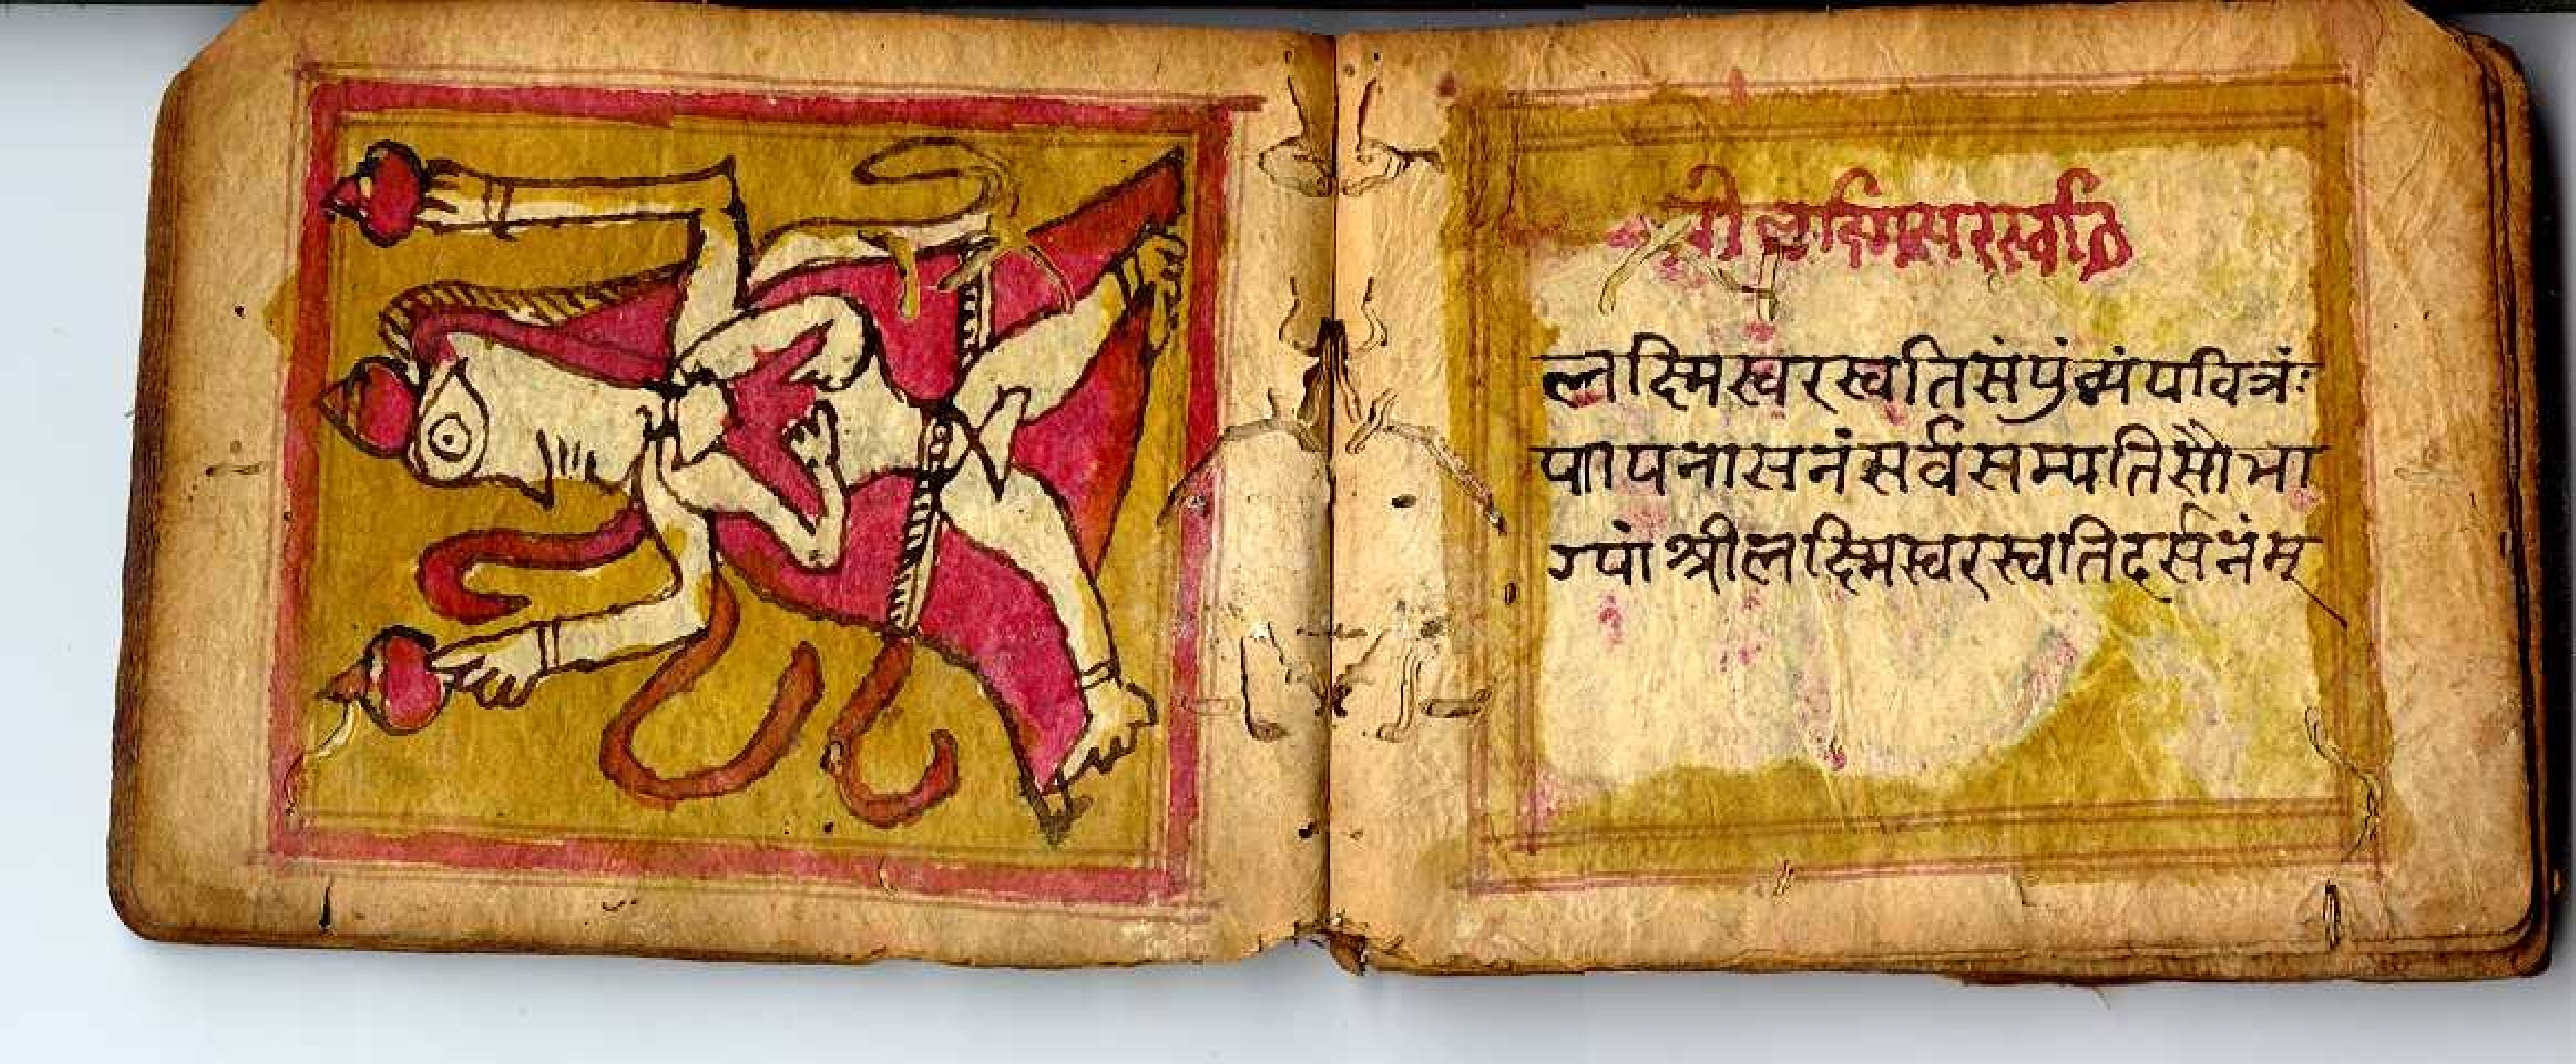 श्रीलक्ष्मिसरस्वति
ल्लक्ष्मिस्वरस्वतिसंपुंन्यंपवित्रंः
पापनासनंसर्वसम्पतिसौभा
ग्यपां श्रीलक्ष्मिस्वरस्वतिदर्सनंम्